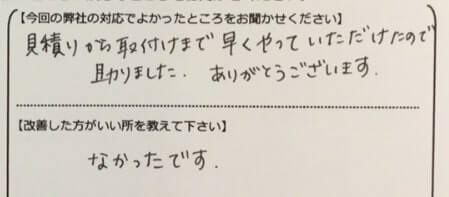 【今回の弊社の対応でよかったところをお聞かせください】
見積りから取付けまで早くやっていただけたので
助りました. ありがとうございます.
【改善した方がいい所を教えて下さい】
なかったです.